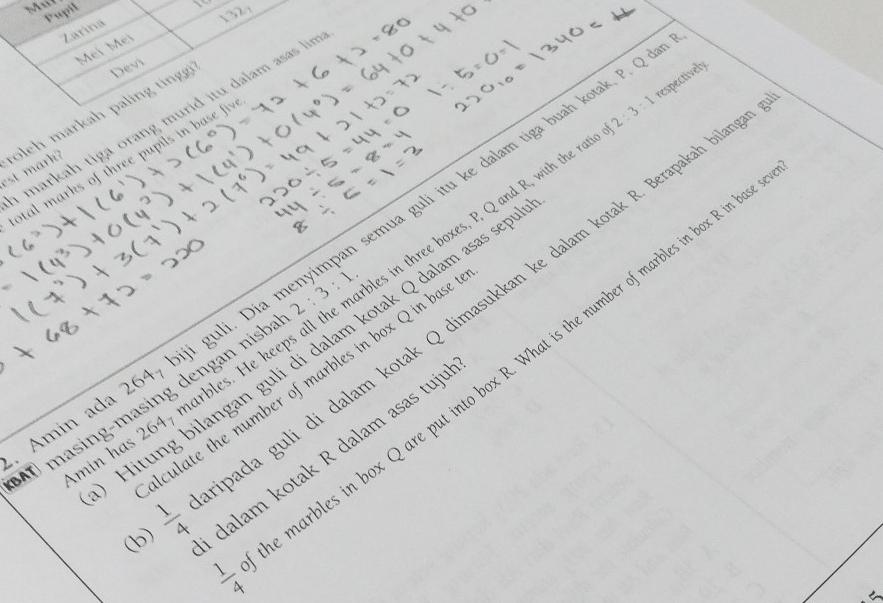 Pupil
Zarina
Mei Mei
Devi
132₇
eroleh markah paling tinggi?
est mark?
ah markah tiga orang murid itu dalam asas lima.
total marks of three pupils in base five.
(6²) + 1(6¹) + 2(6⁰) = 72 + 6 + 2 = 80
= 1(4³) + 0(4²) + 1(4¹) + 0(4⁰) = 64 + 0 + 4 + 0
1(7²) + 3(7¹) + 2(7⁰) = 49 + 21 + 2 = 72
+ 68 + 72 = 220
220 ÷ 5 = 44 = 0
44 ÷ 5 = 8 = 4
8 ÷ 5 = 1 = 3
1 ÷ 5 = 0 = 1
220₁₀ = 1340₅
2. Amin ada 264₇ biji guli. Dia menyimpan semua guli itu ke dalam tiga buah kotak, P, Q dan R,
KBAT masing-masing dengan nisbah 2 : 3 : 1.
Amin has 264₇ marbles. He keeps all the marbles in three boxes, P, Q and R, with the ratio of 2 : 3 : 1 respectively.
(a) Hitung bilangan guli di dalam kotak Q dalam asas sepuluh.
Calculate the number of marbles in box Q in base ten.
(b) 1/4 daripada guli di dalam kotak Q dimasukkan ke dalam kotak R. Berapakah bilangan guli
di dalam kotak R dalam asas tujuh?
1/4 of the marbles in box Q are put into box R. What is the number of marbles in box R in base seven?